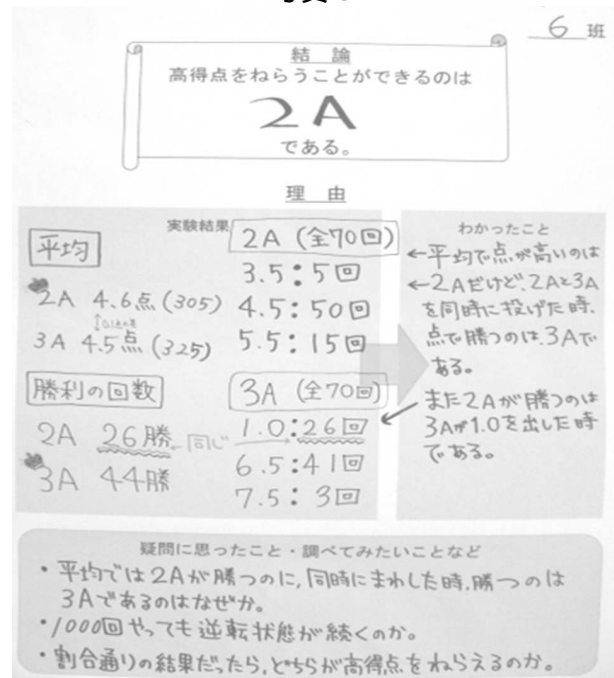 6 班
結 論
高得点をねらうことができるのは
2A
である。
理 由
実験結果
平均
2A 4.6点 (305)
3A 4.5点 (325)
勝利の回数
2A 26勝 ←同じ→
3A 44勝
2A (全70回)
3.5:5回
4.5:50回
5.5:15回
3A (全70回)
1.0:26回
6.5:41回
7.5:3回
わかったこと
←平均で点が高いのは
←2Aだけど、2Aと3A
を同時に投げた時、
点で勝つのは、3Aで
ある。
また2Aが勝つのは
3Aが1.0を出した時
である。
疑問に思ったこと・調べてみたいことなど
・平均では2Aが勝つのに、同時にまわした時、勝つのは
3Aであるのはなぜか。
・1000回やっても逆転状態が続くのか。
・割合通りの結果だったら、どちらが高得点をねらえるのか。